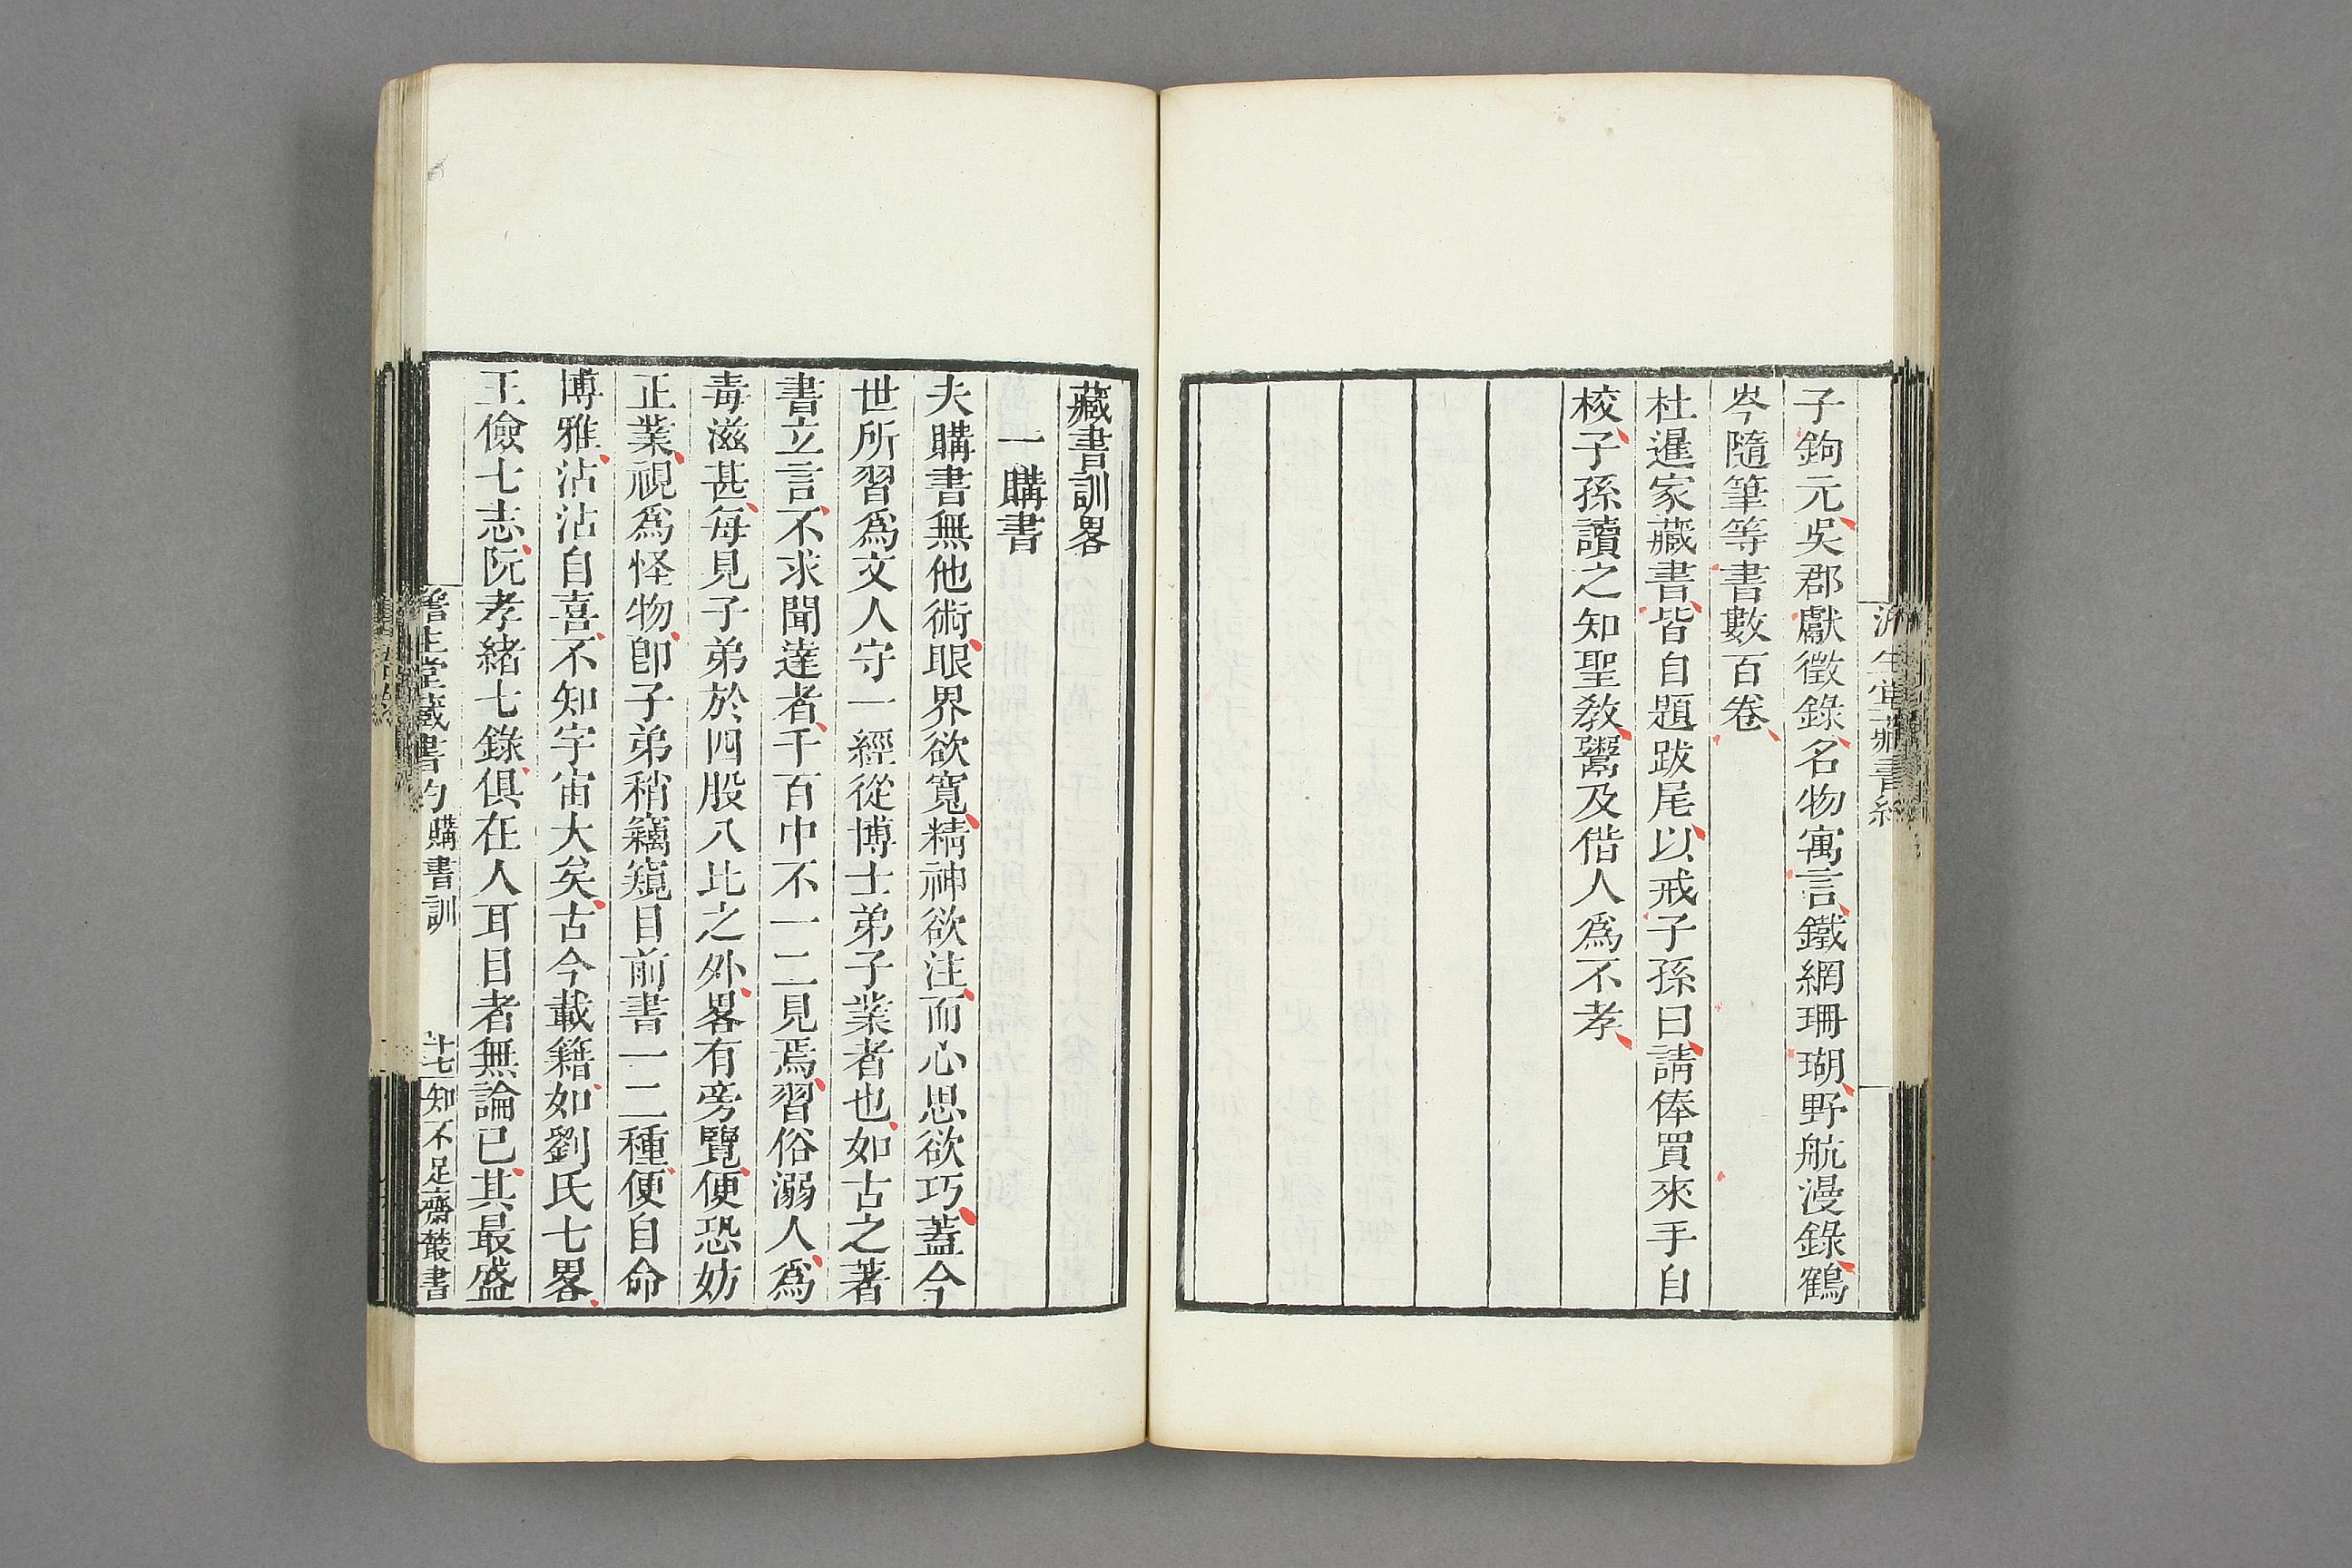 子鉤元吳郡獻徵錄名物寓言鐵網珊瑚野航漫錄鶴
岑隨筆等書數百卷
杜暹家藏書皆自題跋尾以戒子孫曰請俸買來手自
校子孫讀之知聖教鬻及借人爲不孝
藏書訓畧
一購書
夫購書無他術眼界欲寬精神欲注而心思欲巧蓋今
世所習爲文人守一經從博士弟子業者也如古之著
書立言不求聞達者千百中不一二見焉習俗溺人爲
毒滋甚每見子弟於四股八比之外畧有旁覽便恐妨
正業視爲怪物卽子弟稍竊窺目前書一二種便自命
博雅沾沾自喜不知宇宙大矣古今載籍如劉氏七畧
王儉七志阮孝緒七錄俱在人耳目者無論已其最盛
生堂藏書約 購書訓 十七 知不足齋叢書